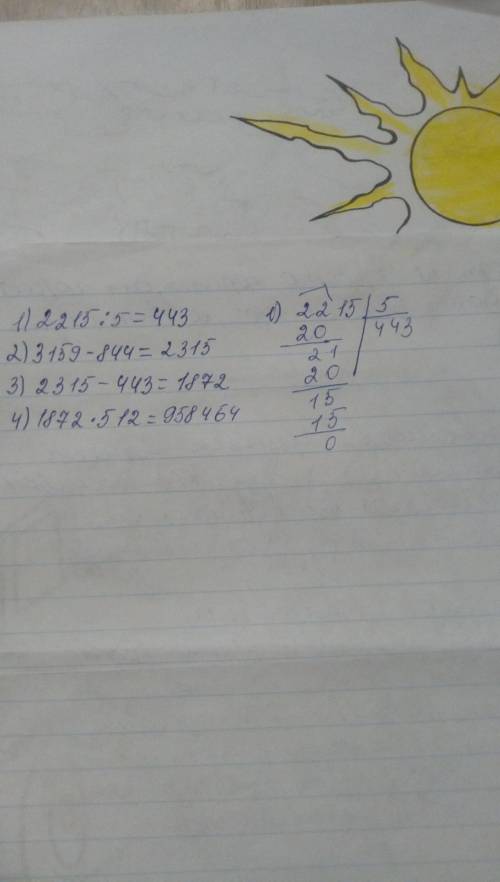 1) 2215:5=443
2) 3159-844=2315
3) 2315-443=1872
4) 1872·512=958464
1) 2215 5
20 443
21
20
15
15
0